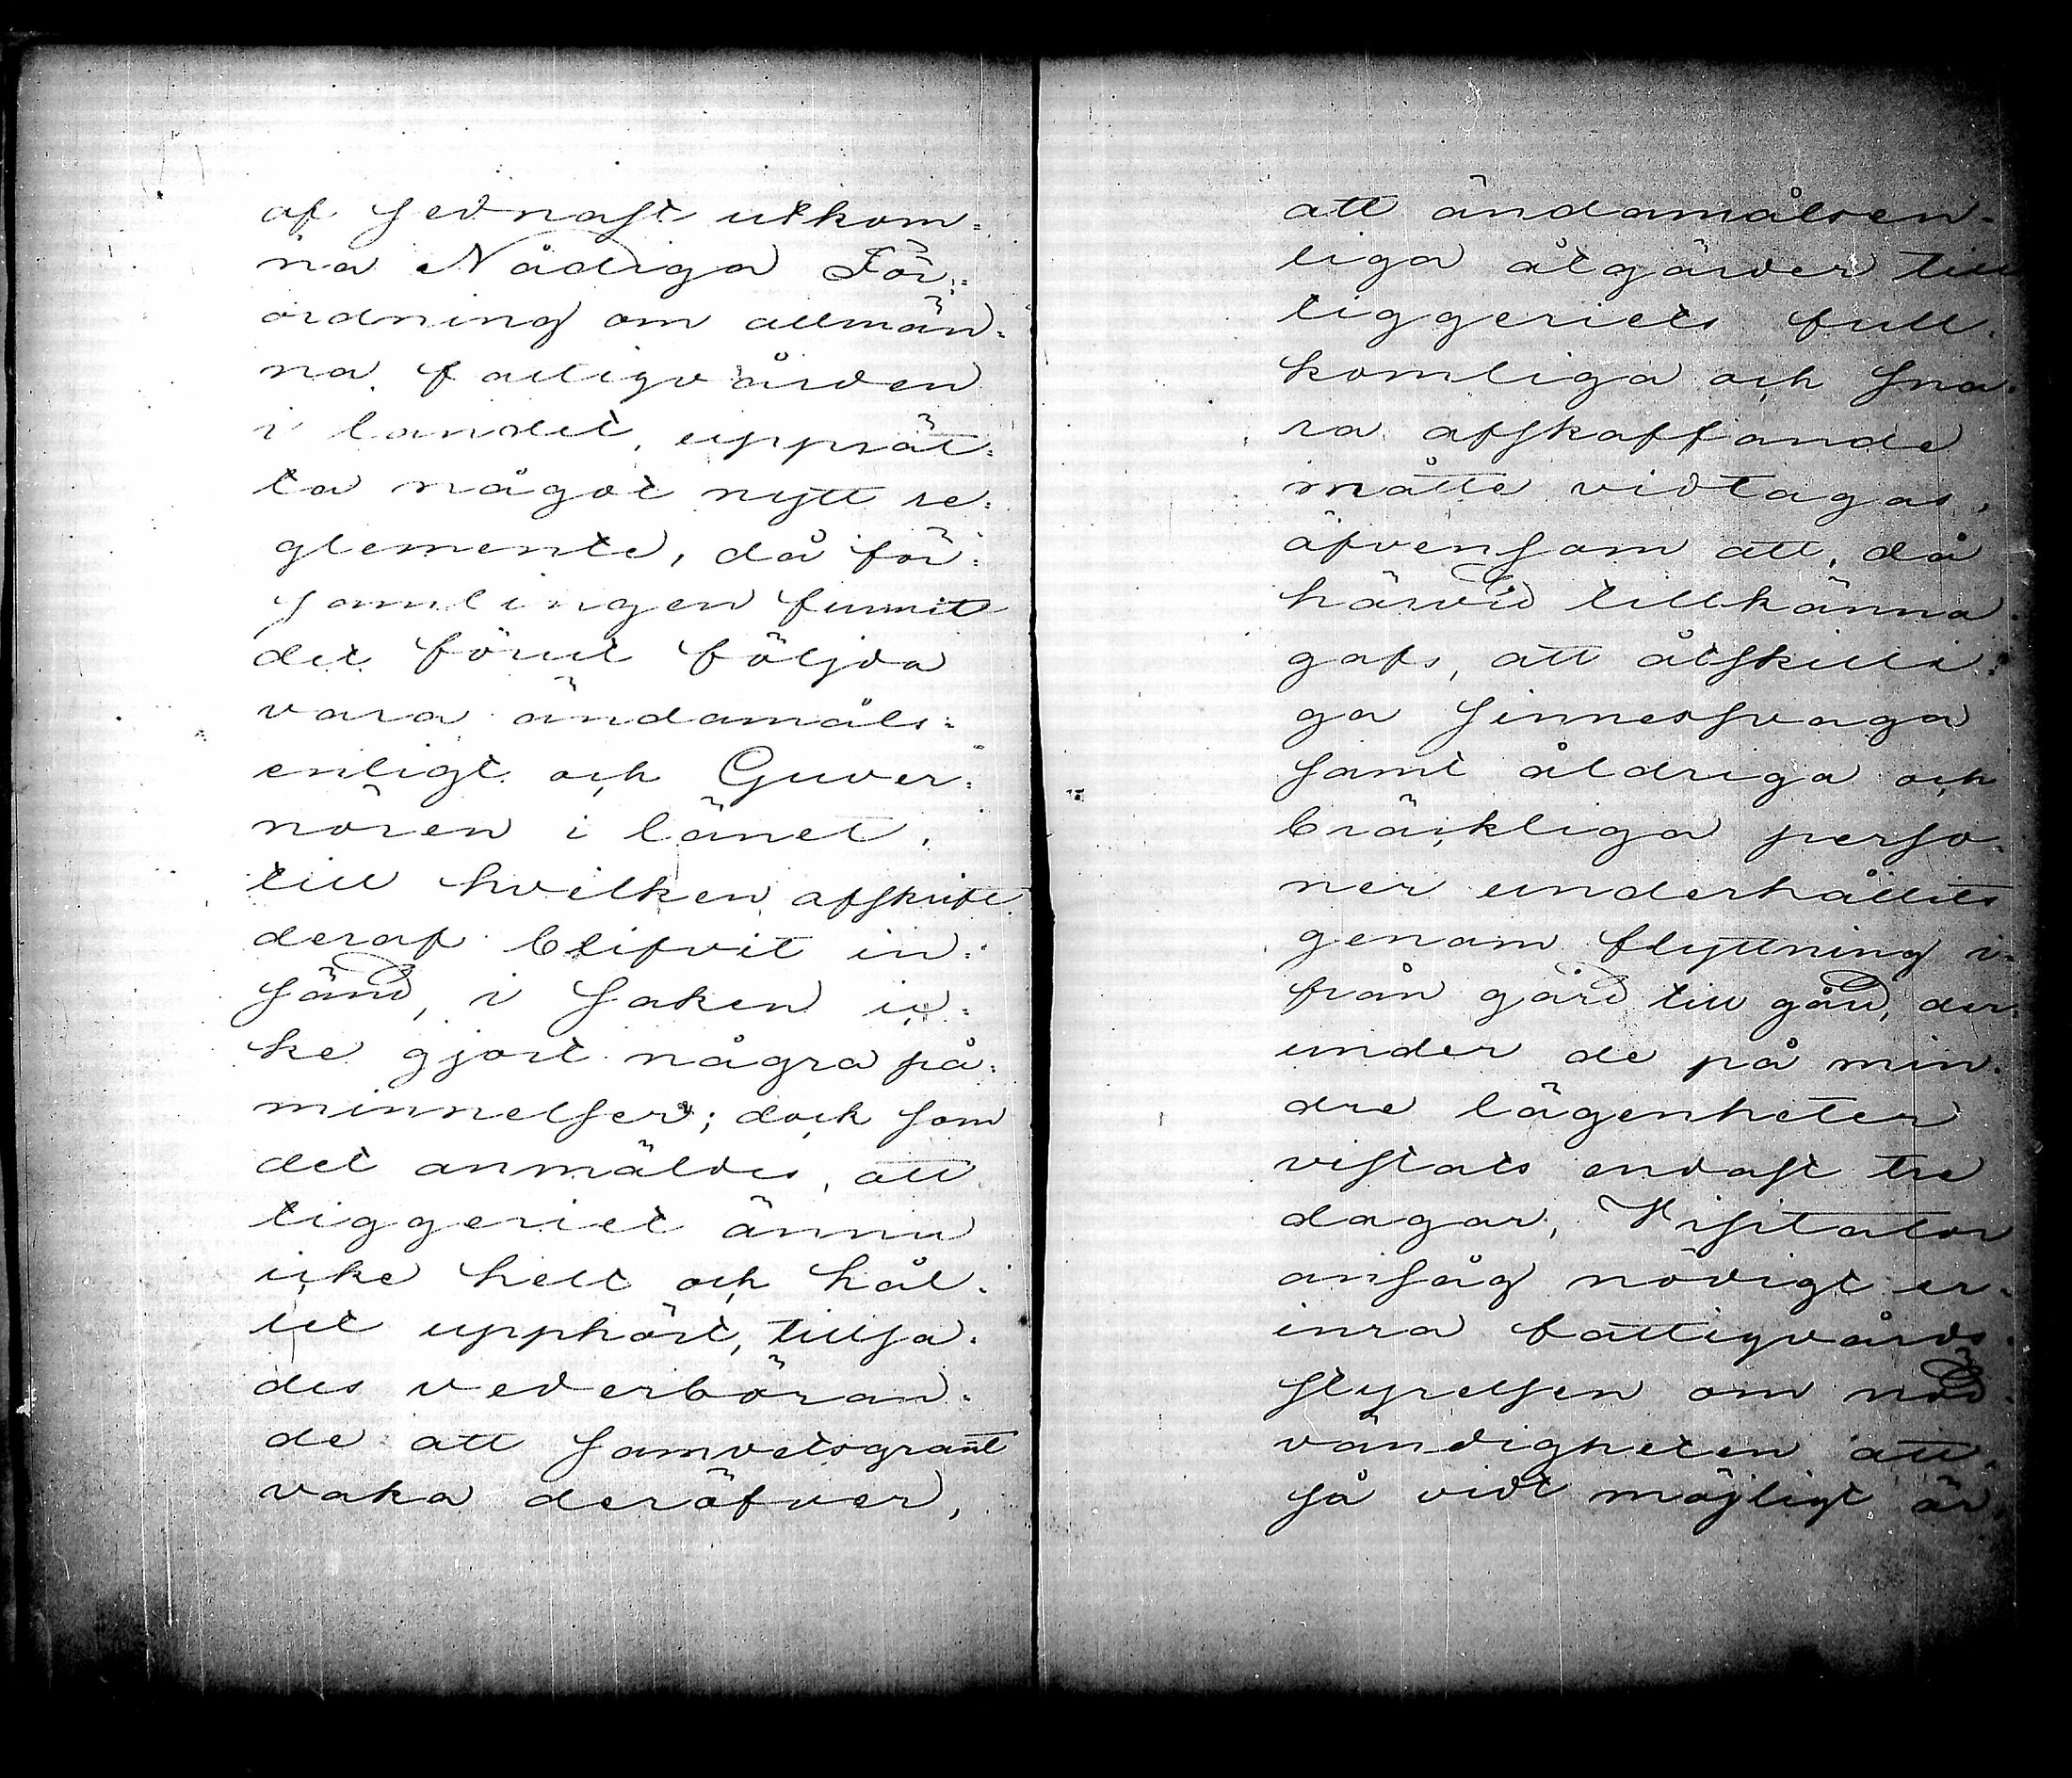 af sednast utkom=
na Nådiga För=
ordning om allmän=
na fattigvården
i landet, upprät=
ta något nytt re=
glemente, då för=
samlingen funnit
det förut följda
vara ändamåls=
enligt och Guver=
nören i länet,
till hvilken afskrift
deraf blifvit in=
sänd, i saken ic=
ke gjort några på=
minnelser; dock som
det anmäldes, att
tiggeriet ännu
icke helt och hål=
let upphört, tillsa=
des vederböran=
de att samvetsgrant
vaka deröfver,
att ändamålsen=
liga åtgärder till
tiggeriets full=
komliga och sna=
ra afskaffande
måtte vidtagas,
äfvensom att, då
härvid tillkänna
gafs, att åtskilli=
ga sinnessvaga
samt åldriga och
bräckliga perso=
ner underhållits
genom flyttning i=
från gård till gård, der=
under de på min=
dre lägenheter
vistats endast tre
dagar, Visitator
ansåg nödigt er=
inra fattigvårds=
styrelsen om nöd=
vändigheten att,
så vidt möjligt är,